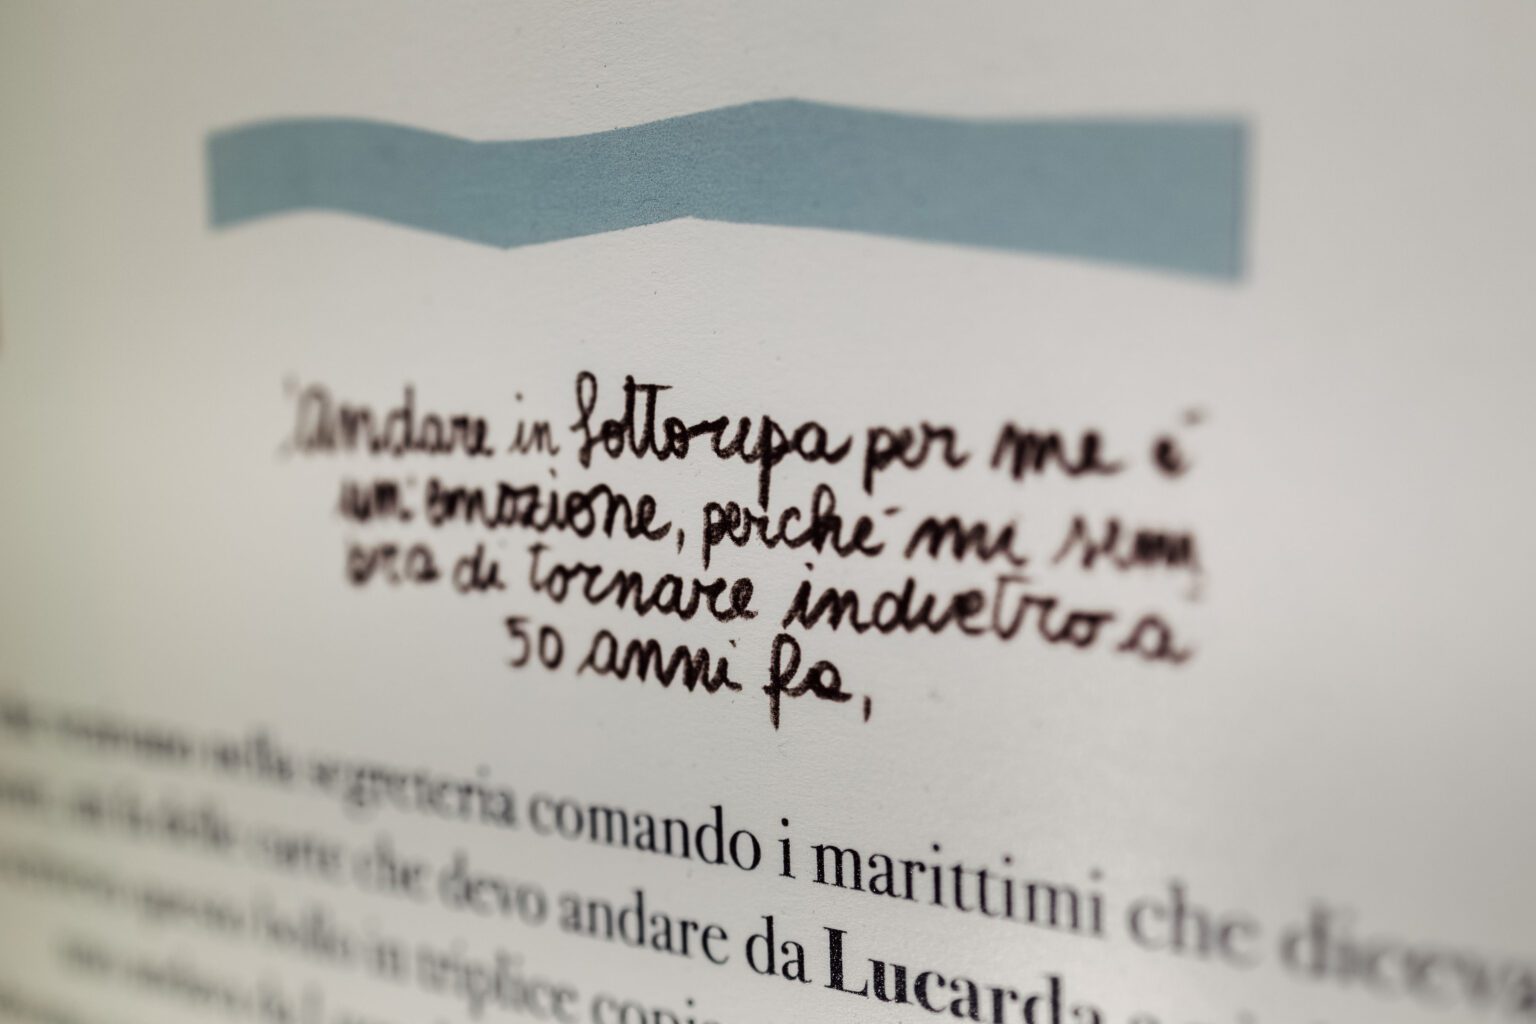 Andare in Sottoripa per me è
un'emozione, perché mi sem
bra di tornare indietro a
50 anni fa,
nella segreteria comando i marittimi che diceva
carte che devo andare da Lucarda
questo bollo in triplice copia